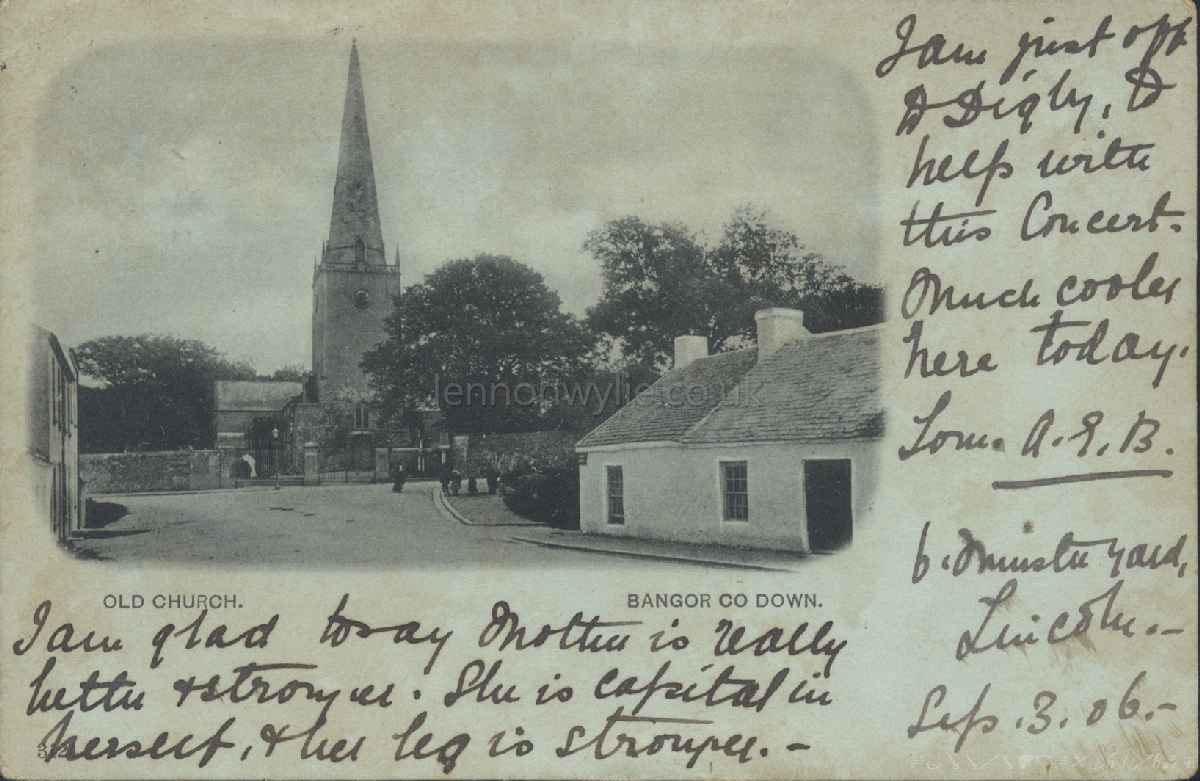 I am just off
to Digby, to
help with
this Concert.
Much cooler
here today.
Lom. A.E.B.
6. Minster yard,
Lincoln.-
Sep. 3. 06.-
lennonwylie.co.uk
OLD CHURCH.
BANGOR CO DOWN.
I am glad to say Mother is really
better & stronger. She is capital in
herself, & her leg is stronger.-